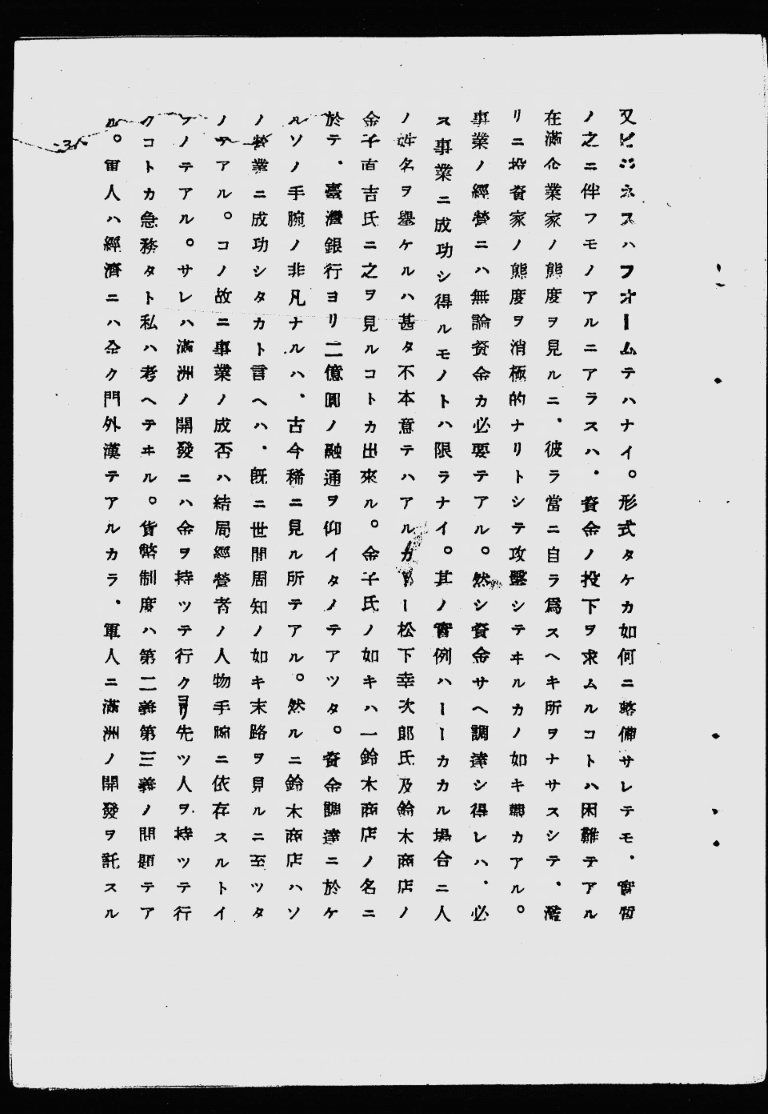 又ビジネスハフオームテハナイ。形式タケカ如何ニ整備サレテモ、實質
ノ之ニ伴フモノアルニアラスハ、資金ノ投下ヲ求ムルコトハ困難テアル
在滿企業家ノ態度ヲ見ルニ、彼ラ當ニ自ラ爲スヘキ所ヲナサスシテ、濫
リニ投資家ノ態度ヲ消極的ナリトシテ攻擊シテヰルカノ如キ觀カアル。
事業ノ經營ニハ無論資金カ必要テアル。然シ資金サヘ調達シ得レハ、必
ス事業ニ成功シ得ルモノトハ限ラナイ。其ノ實例ハーーカカル場合ニ人
ノ姓名ヲ擧ケルハ甚タ不本意テハアルカーー松下幸次郎氏及鈴木商店ノ
金子直吉氏ニ之ヲ見ルコトカ出來ル。金子氏ノ如キハ一鈴木商店ノ名ニ
於テ、臺灣銀行ヨリ二億圓ノ融通ヲ仰イタノテアツタ。資金調達ニ於ケ
ルソノ手腕ノ非凡ナルハ、古今稀ニ見ル所テアル。然ルニ鈴木商店ハソ
ノ營業ニ成功シタカト言ヘハ、既ニ世間周知ノ如キ末路ヲ見ルニ至ツタ
ノテアル。コノ故ニ事業ノ成否ハ結局經營者ノ人物手腕ニ依存スルトイ
フノテアル。サレハ滿洲ノ開發ニハ金ヲ持ツテ行クヨリ先ツ人ヲ持ツテ行
クコトカ急務タト私ハ考ヘテヰル。貨幣制度ハ第二義第三義ノ問題テア
ル。軍人ハ經濟ニハ全ク門外漢テアルカラ、軍人ニ滿洲ノ開發ヲ託スル